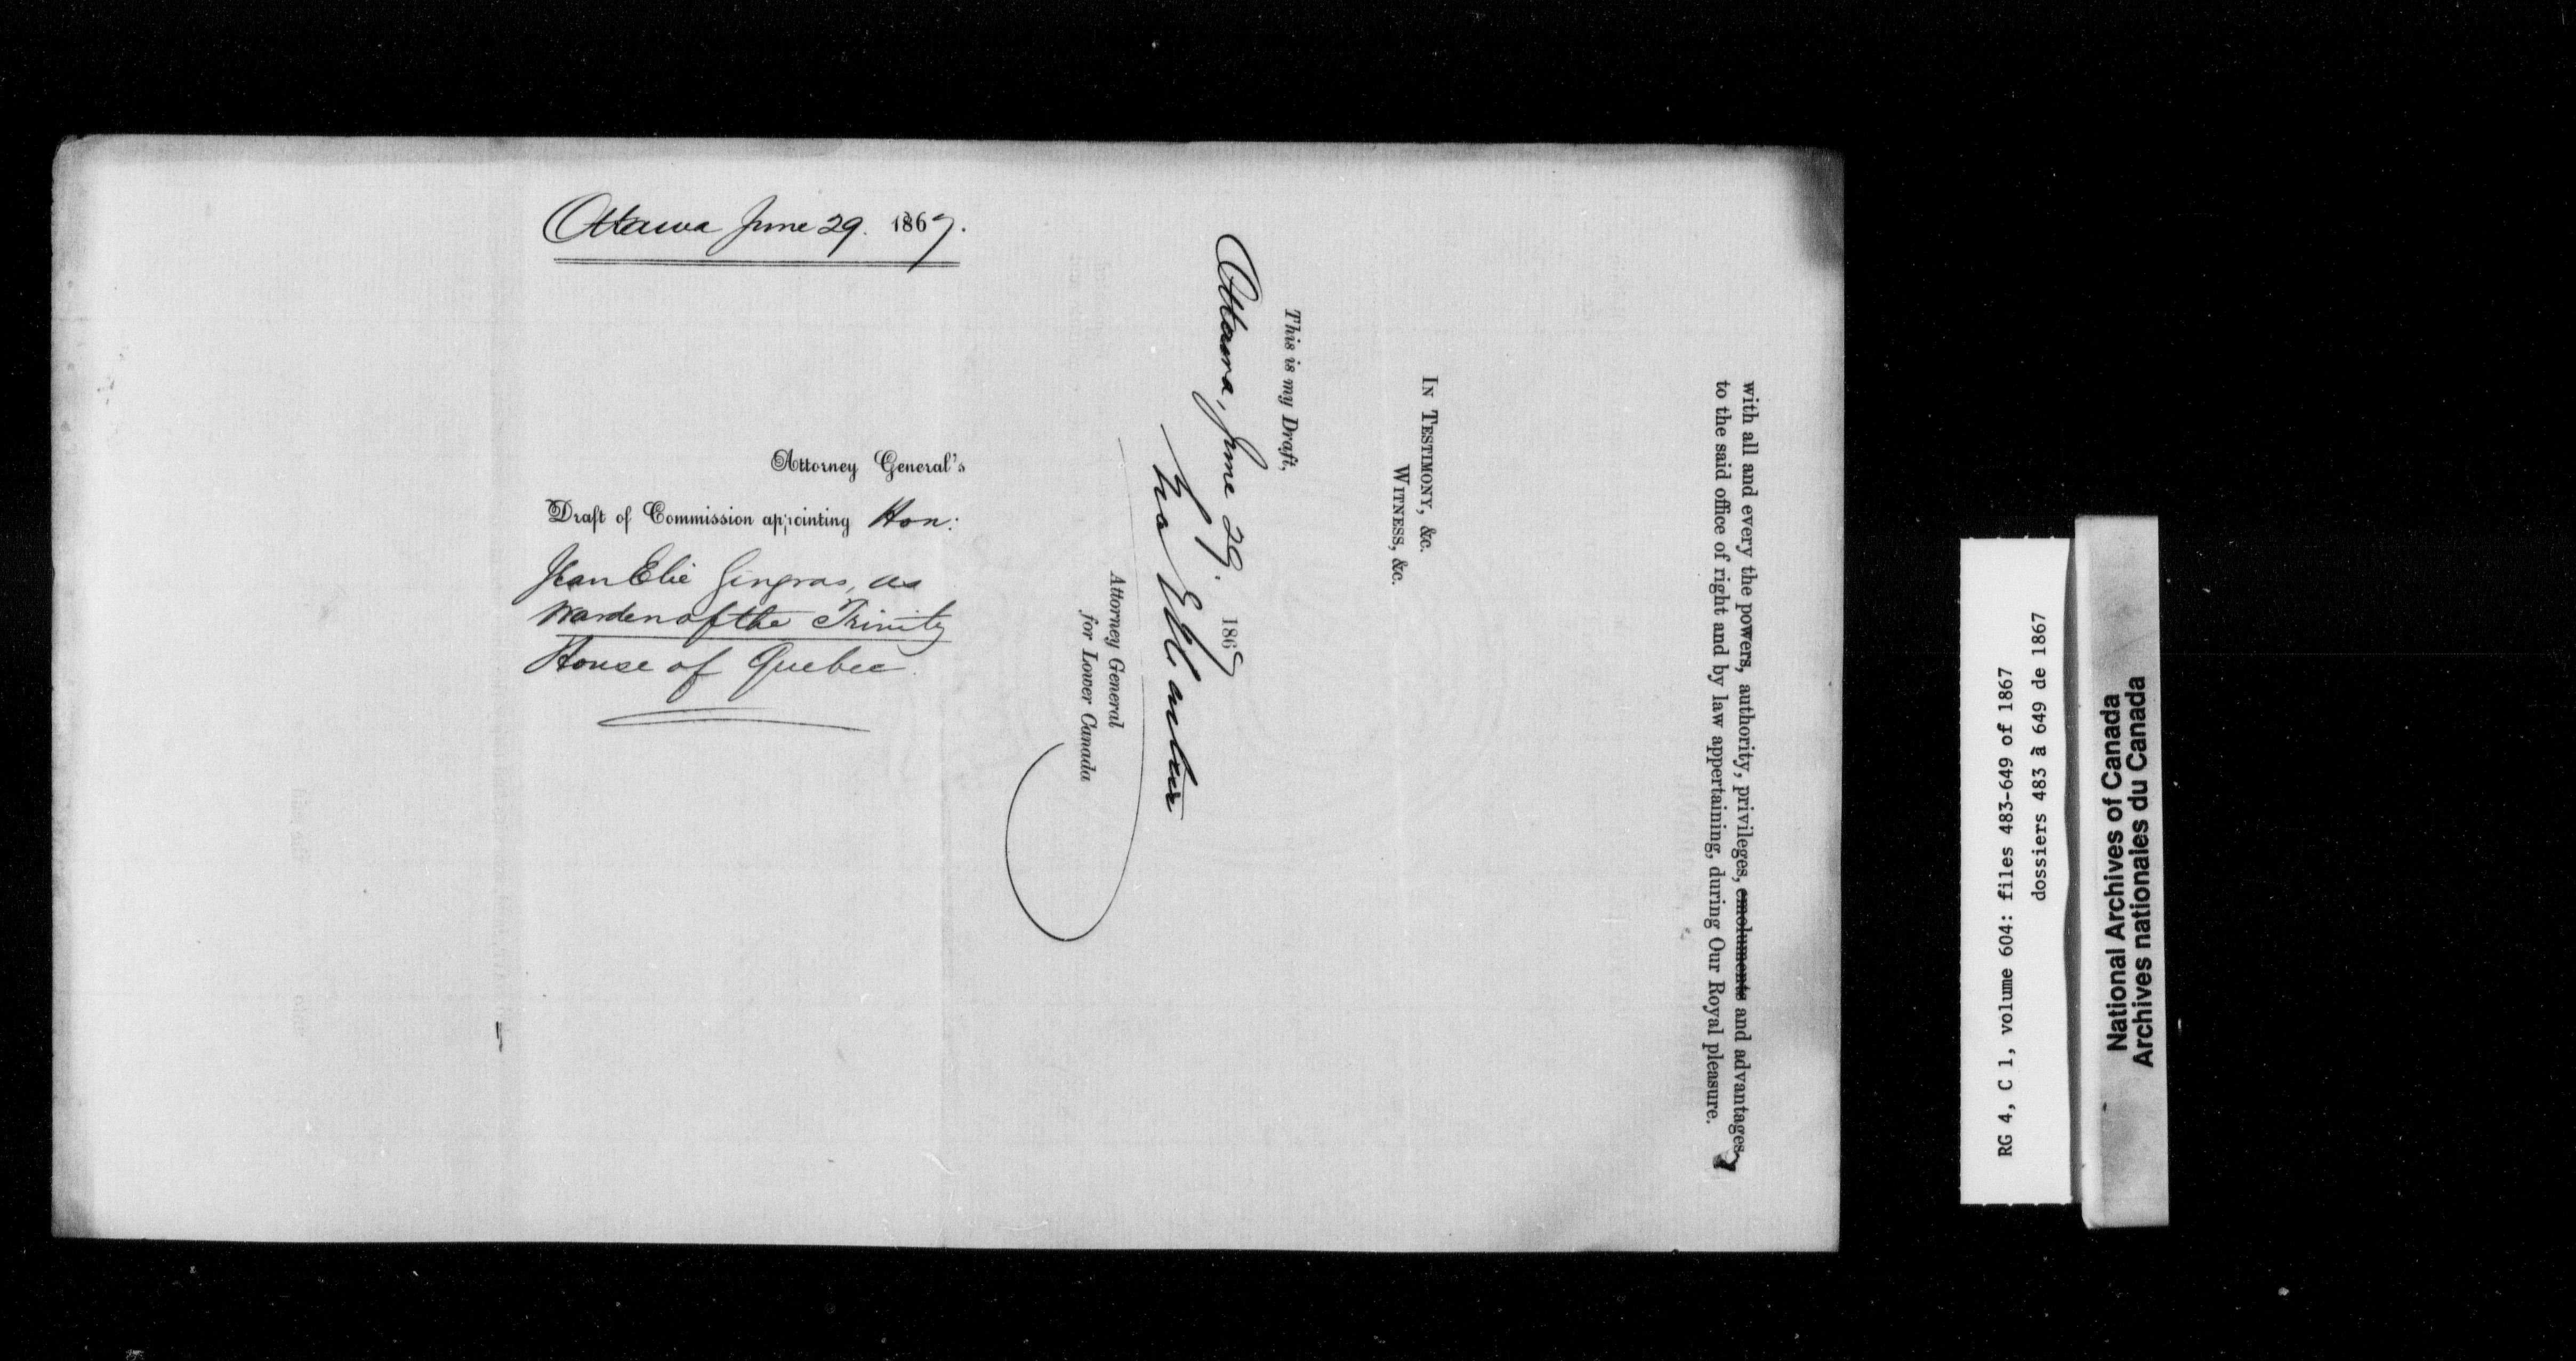 Ottawa June 29. 1867.
Attorney General's
Draft of Commission appointing Hon:
Jean Elie Gingras, as
Warden of the Trinity
House of Quebec.
with all and every the powers, authority, privileges, emoluments and advantages
to the said office of right and by law appertaining, during Our Royal pleasure.
IN TESTIMONY, &c.
WITNESS, &c.
This is my Draft,
Ottawa, June 29. 1867
Attorney General
for Lower Canada
RG 4, C 1, volume 604: files 483-649 of 1867
dossiers 483 à 649 de 1867
National Archives of Canada
Archives nationales du Canada